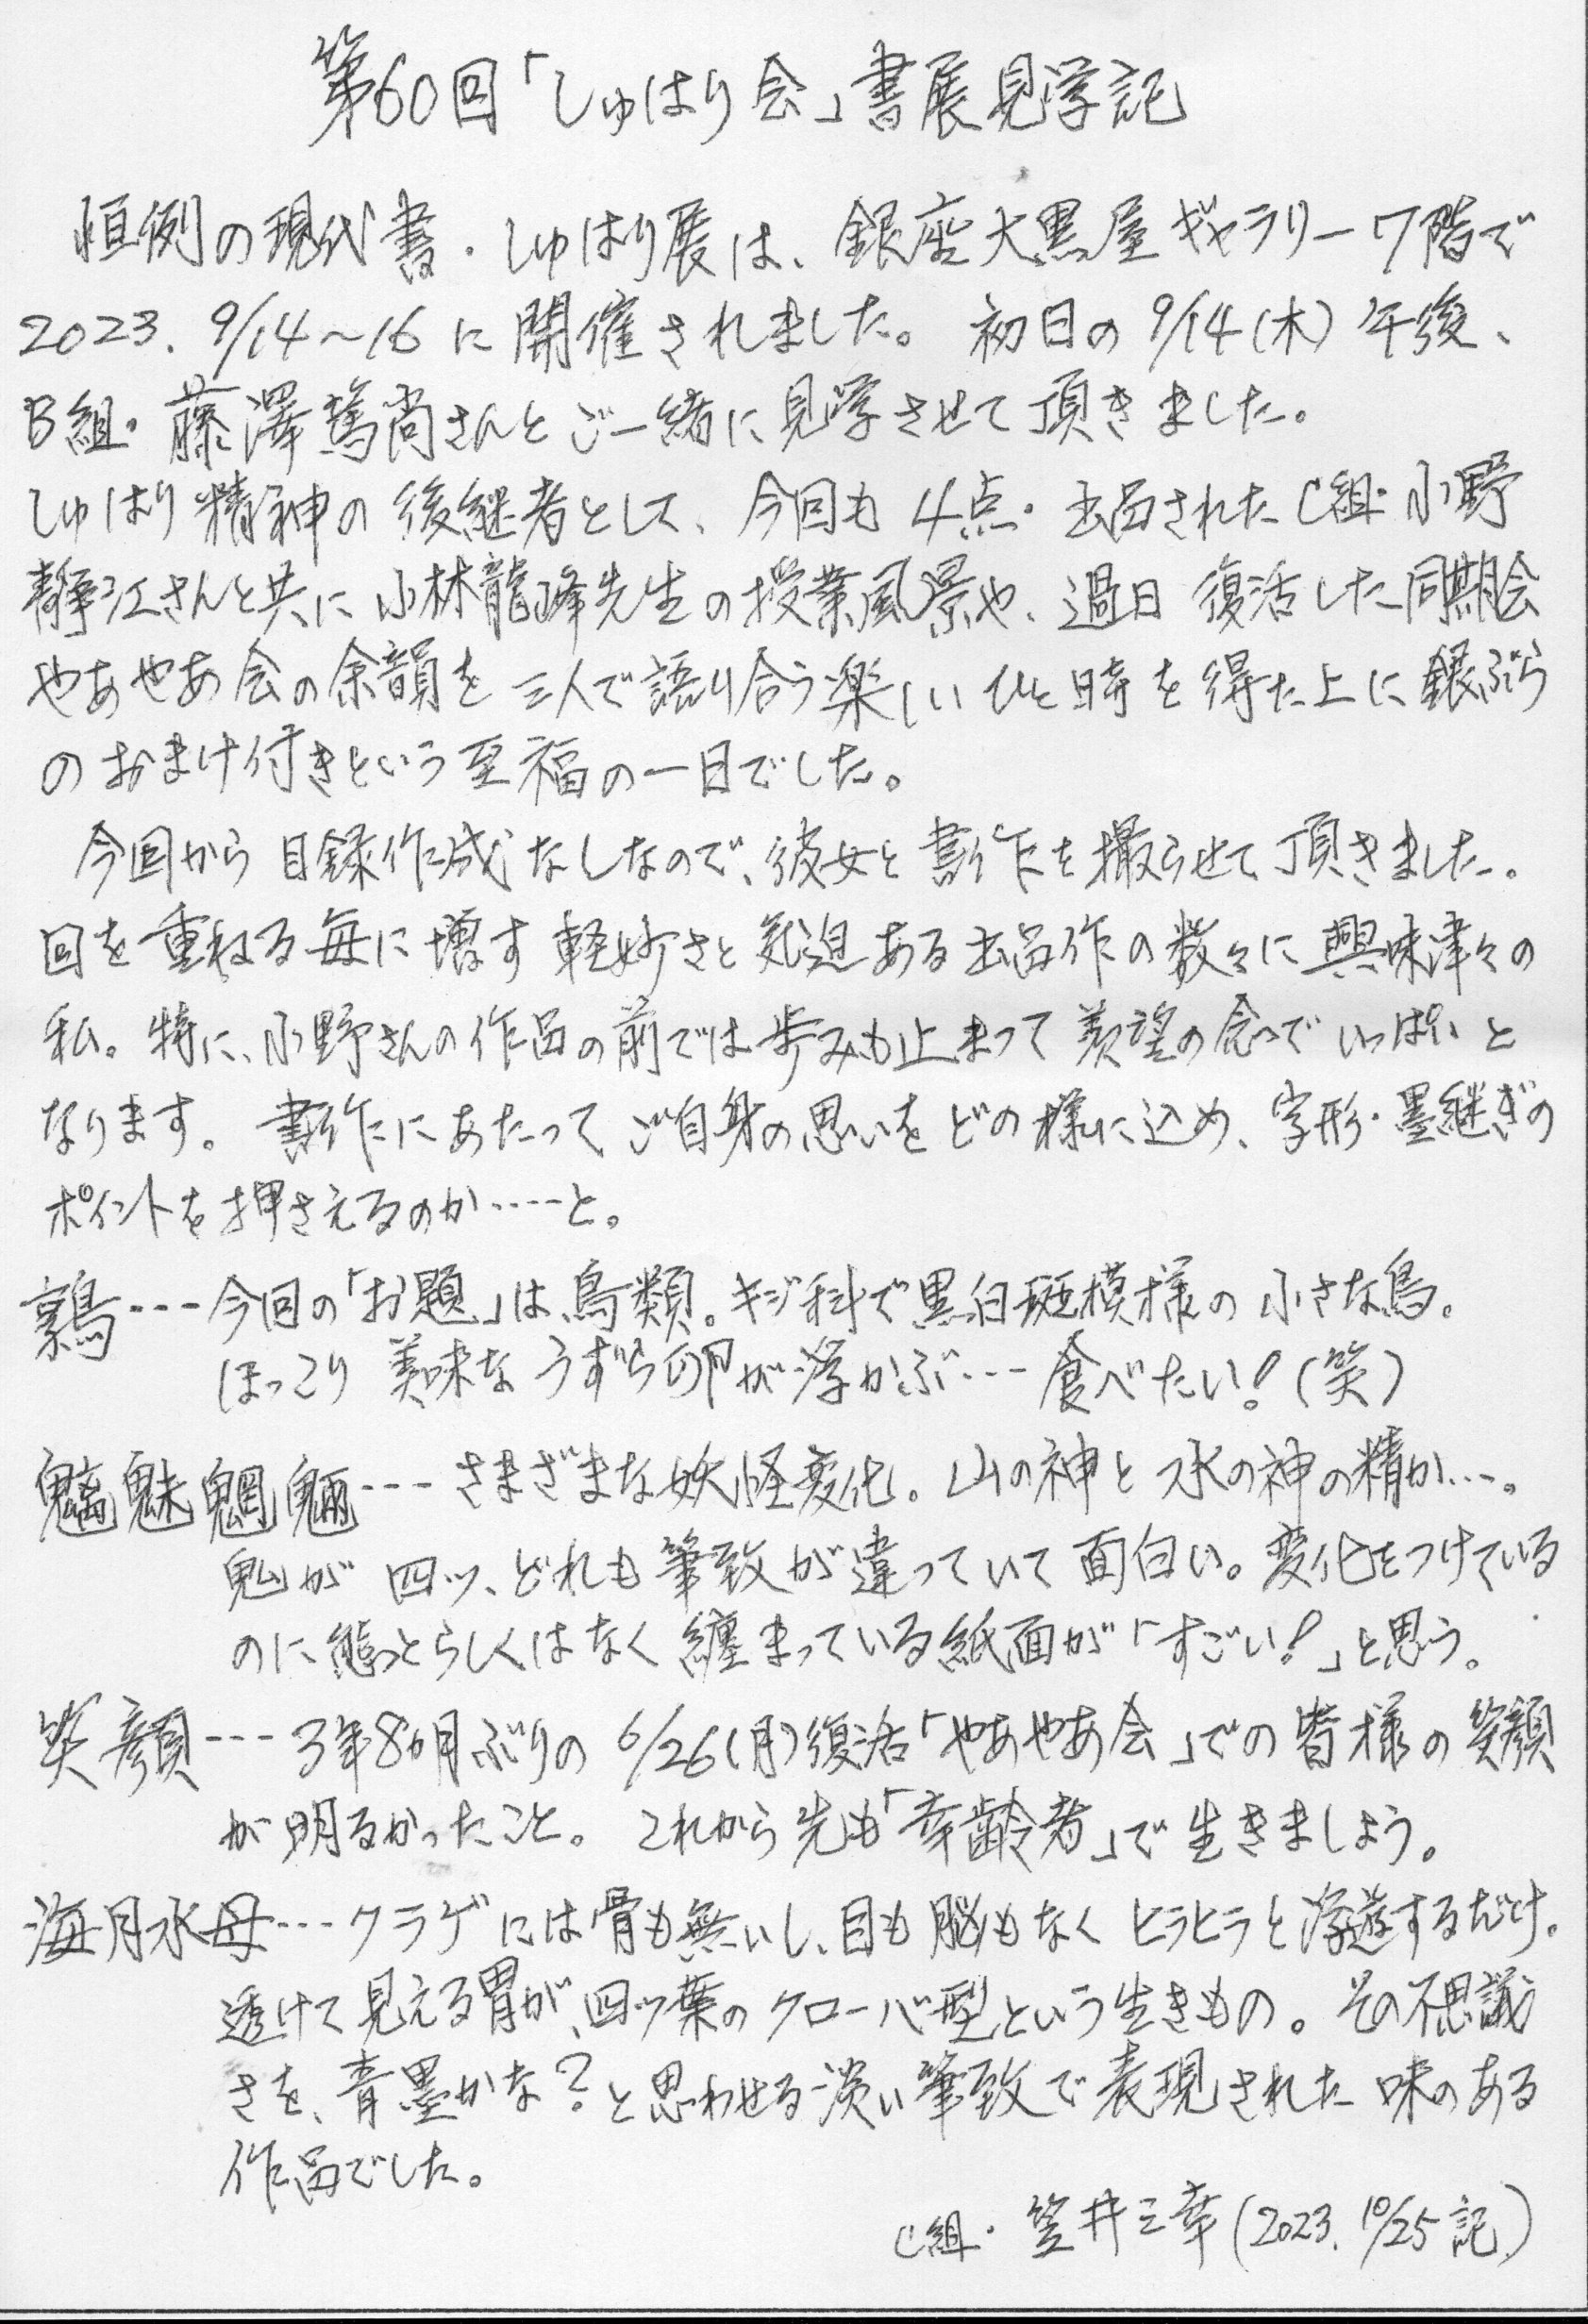 第60回「しゅはり会」書展見学記
恒例の現代書・しゅはり展は、銀座大黒屋ギャラリー7階で
2023. 9/14〜16 に開催されました。初日の 9/14(木) 午後、
B組・藤澤篤尚さんとご一緒に見学させて頂きました。
しゅはり精神の後継者として、今回も 4点・出品されたC組・小野
静江さんと共に小林龍峰先生の授業風景や、過日 復活した同期会
やあやあ会の余韻を三人で語り合う楽しいひと時を得た上に銀ぶら
のおまけ付きという至福の一日でした。
今回から目録作成なしなので、彼女と書作を撮らせて頂きました。
回を重ねる毎に増す軽妙さと気迫ある出品作の数々に興味津々の
私。特に、小野さんの作品の前では歩みも止まって羨望の念でいっぱいと
なります。書作にあたってご自身の思いをどの様に込め、字形・墨継ぎの
ポイントを押さえるのか‥‥と。
鶉‥‥今回の「お題」は鳥類。キジ科で黒白斑模様の小さな鳥。
ほっこり 美味なうずら卵が浮かぶ‥‥食べたい!(笑)
魑魅魍魎‥‥さまざまな妖怪変化。山の神と水の神の精か…。
鬼が 四ッ、どれも筆致が違っていて面白い。変化をつけている
のに態とらしくはなく纏まっている紙面が「すごい!」と思う。
笑顔‥‥3年8ヵ月ぶりの 6/26(月)復活「やあやあ会」での皆様の笑顔
が明るかったこと。これから先も「幸齢者」で生きましょう。
海月水母‥‥クラゲには骨も無いし、目も脳もなくヒラヒラと浮遊するだけ。
透けて見える胃が、四ッ葉のクローバ型という生きもの。その不思議
さを、青墨かな?と思わせる淡い筆致で表現された味のある
作品でした。
C組・笠井三幸(2023. 10/25 記)